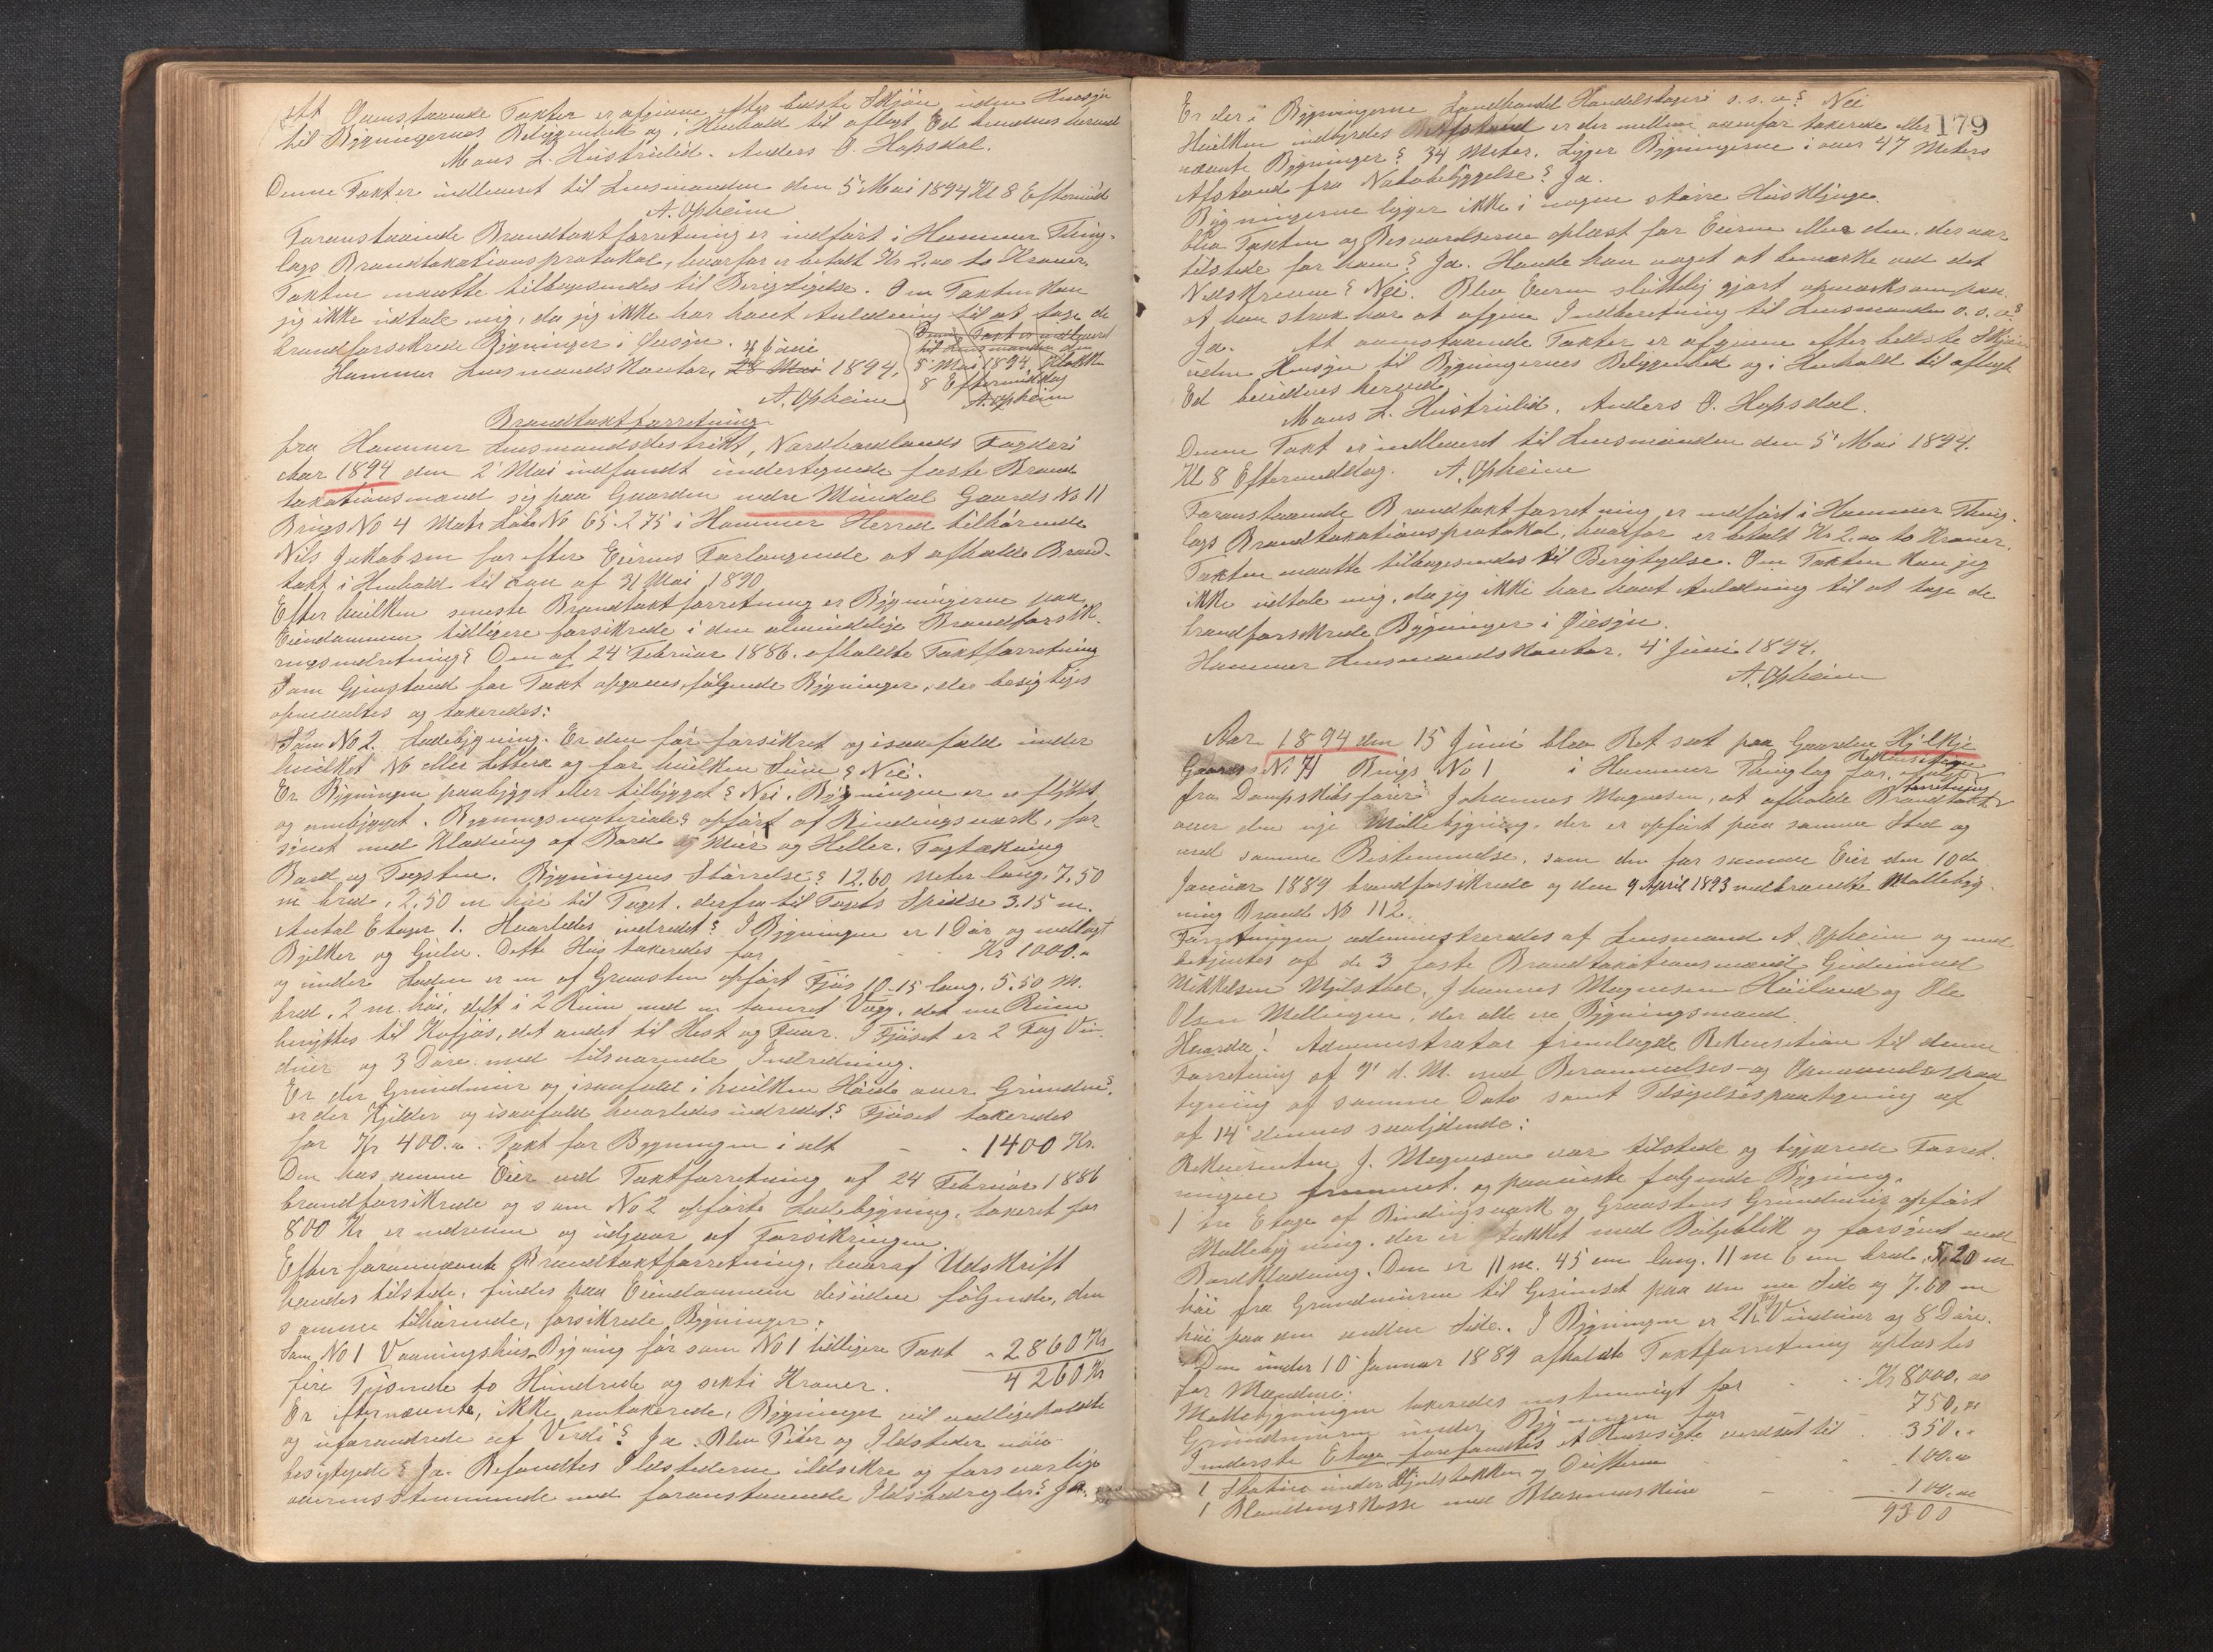 At Ovenstaaende Takter er afgivne efter bedste Skjøn uden Hensyn
til Bygningernes Beliggenhed og i Henhold til aflagt Ed bevidnes herved
Mons L. Hustrulid. Anders O. Hopsdal.
Denne Takt er indleveret til Lensmanden den 5' Mai 1894 Kl 8 Eftermid
A. Opheim
Foranstaaende Brandtaktforretning er indført i Hammer Thing-
lags Brandtaxationsprotokol, hvorfor er betalt Kr 2.00 to Kroner.
Takten maatte tilbagesendes til Berigtigelse. Om Takten kan
jeg ikke udtale mig, da jeg ikke har havt Anledning til at tage de
brandforsikrede Bygninger i Øiesyn. 4 Juni
Hammer Lensmandskontor, 28 Mai 1894.
A. Opheim
Denne Takt er indleveret
til Lensmanden den
5' Mai 1894 Klokken
8 Eftermiddag
A. Opheim
Brandtaktforretning
fra Hammer Lensmandsdestrikt, Nordhordlands Fogderi
Aar 1894 den 2' Mai indfandt undertegnede faste Brand
taxationsmænd sig paa Gaarden nedre Mundal Gaards No 11
Brugs No 4 Matr Løbe No 65.275 i Hammer Herred tilhørende
Nils Jakobsen for efter Eierens Forlangende at afholde Brand-
takt i Henhold til Lov af 31 Mai 1890.
Efter hvilken seneste Brandtaktforretning er Bygningerne paa
Eiendommen tidligere forsikrede i den almindelige Brandforsik-
ringsindretning? Den af 24' Februar 1886. afholdte Taktforretning
Som Gjenstand for Takt opgaves følgende Bygninger, der besigtiges
opmaaltes og takseredes:
Som No 2. Ladebygning. Er den før forsikret og isaafald under
hvilket No eller Littera og for hvilken Sum? Nei.
Er Bygningen paabygget eller tilbygget? Nei. Bygningen er afflyttet
og ombygget. Bygningsmateriale? opført af Bindingsværk, for
synet med Klædning af Bord og Mur og Heller. Tagtækning
Bord og Tagsten. Bygningens Størrelse? 12.60 meter lang, 7.50
m bred, 2.50 m høi til Taget. derfra til Tagets Spidse 3.15 m.
Antal Etager 1. Hvorledes indredet? I Bygningen er 1 Dør og indlagt
Bjelker og Gulv. Dette Hus takseredes for - - Kr 1000.-
og under Laden er en af Graasten opført Fjøs 10.15 lang. 5.50 M.
bred, 2 m. høi, delt i 2 Rum med en tømret Væg, det ene Rum
benyttes til Kofjøs, det andet til Hest og Faar. I Fjøset er 2 Fag Vin-
duer og 3 Døre. med tilsvarende Indredning.
Er der Grundmur og isaafald i hvilken Høide over Grunden?
er der Kjelder og isaafald hvorledes indredet? Fjøset takseredes
for Kr 400.-. Takt for Bygningen i alt - - 1400 Kr.
Den hos samme Eier ved Taktforretning af 24 Februar 1886
brandforsikrede og som No 2 opførte Ladebygning, takseret for
800 Kr er nedreven og udgaar af Forsikringen.
Efter forannævnte Brandtaktforretning, hvoraf Udskrift
havdes tilstede, findes paa Eiendommen desuden følgende, den
samme tilhørende, forsikrede Bygninger:
Som No 1 Vaaningshus. Bygning før som No 1 tidligere Takt - 2860 Kr
4260 Kr
fire Tusinde to Hundrede og sexti Kroner.
Er efternævnte, ikke omtakserede, Bygninger vel vedligeholdte
og uforandrede af Værdi? Ja. Blev Piber og Ildsteder nøie
besigtigede? Ja. Befandtes Ildstederne ildsikre og forsvarlige
overensstemmende med foranstaaende Ildstedregler? Ja.
179
Er der i Bygningerne Landhandel Handelslager o.s.v.? Nei
Hvilken indbyrdes Afstand er der mellem ovenfor takserede eller
nævnte Bygninger? 34 Meter. Ligger Bygningerne i over 47 Meters
Afstand fra Nabobebyggelse? Ja.
Bygningerne ligger ikke i nogen større Husklynge.
Blev Takten og Besvarelserne oplæst for Eieren eller den, der var
tilstede for ham? Ja. Havde han noget at bemærke ved det
Nedskrevne? Nei. Blev Eieren sluttelig gjort opmærksom paa
at han strax har at afgive Indberetning til Lensmanden o.s.v.?
Ja. At ovenstaaende Takter er afgivne efter bedste Skjøn
uden Hensyn til Bygningernes Beliggenhed og i Henhold til aflagt
Ed bevidnes herved
Mons L. Hustrulid. Anders O. Hopsdal.
Denne Takt er indleveret til Lensmanden den 5' Mai 1894.
Kl 8 Eftermiddag. A. Opheim
Foranstaaende Brandtaktforretning er indført i Hammer Thing-
lags Brandtaxationsprotokol, hvorfor er betalt Kr 2.00 to Kroner.
Takten maatte tilbagesendes til Berigtigelse. Om Takten kan jeg
ikke udtale mig, da jeg ikke har havt Anledning til at tage de
brandforsikrede Bygninger i Øiesyn.
Hammer Lensmandskontor. 4' Juni 1894.
A. Opheim
Aar 1894 den 15 Juni blev Ret sat paa Gaarden Hjelkje
Gaards No 71 Brugs No 1 i Hammer Thinglag for, efter Rekvisition
fra Dampskibsfører Johannes Magnesen, at afholde Brandtakt-
forretning
over den nye Møllebygning, der er opført paa samme Sted og
med samme Bestemmelse, som den for samme Eier den 10de
Januar 1889 brandforsikrede og den 9 April 1893 nedbrændte Møllebyg-
ning Brand No 112.
Forretningen administreredes af Lensmand A. Opheim og med
betjentes af de 3 faste Brandtaxationsmænd Gudmund
Mikkelsen Mjelstad, Johannes Magnesen Høiland og Ole
Olsen Mellingen, der alle ere Bygningsmænd.
Hvorda! Administrator fremlagde Rekvisition til denne
Forretning af 7' d. M. med Berammelses- og Opnævnelsespaa
tegning af samme Dato samt Tilsigelsespaategning af
af 14' dennes saalydende:
Rekvirenten J. Magnesen var tilstede og begjærede Forret-
ningen fremmet. og paaviste følgende Bygning.
1 tre Etage af Bindingsværk og Graastens Grundmur opført
Møllebygning, der er tækket med Bølgeblik og forsynet med
Bordklædning. Den er 11 m. 45 cm lang. 11 m 6 cm bred, 5,20 m
høi fra Grundmuren til Gesimset paa den ene Side og 7.60 m
høi paa den anden Side. I Bygningen er 21 Fag Vinduer og 8 Døre.
Den under 10' Januar 1889 afholdte Taktforretning oplæstes
for Mændene.
Møllebygningen takseredes enstemmigt for - - Kr 8000.00
Grundmuren under Bygningen for - 750.-
I underste Etage forefandtes et Rensesigte værdsat til - 350.-
1 Stativ under Hjulstokken og Drifteren - - 100.-
1 Blandingskasse med Blæsemaskine - 100.00
9300